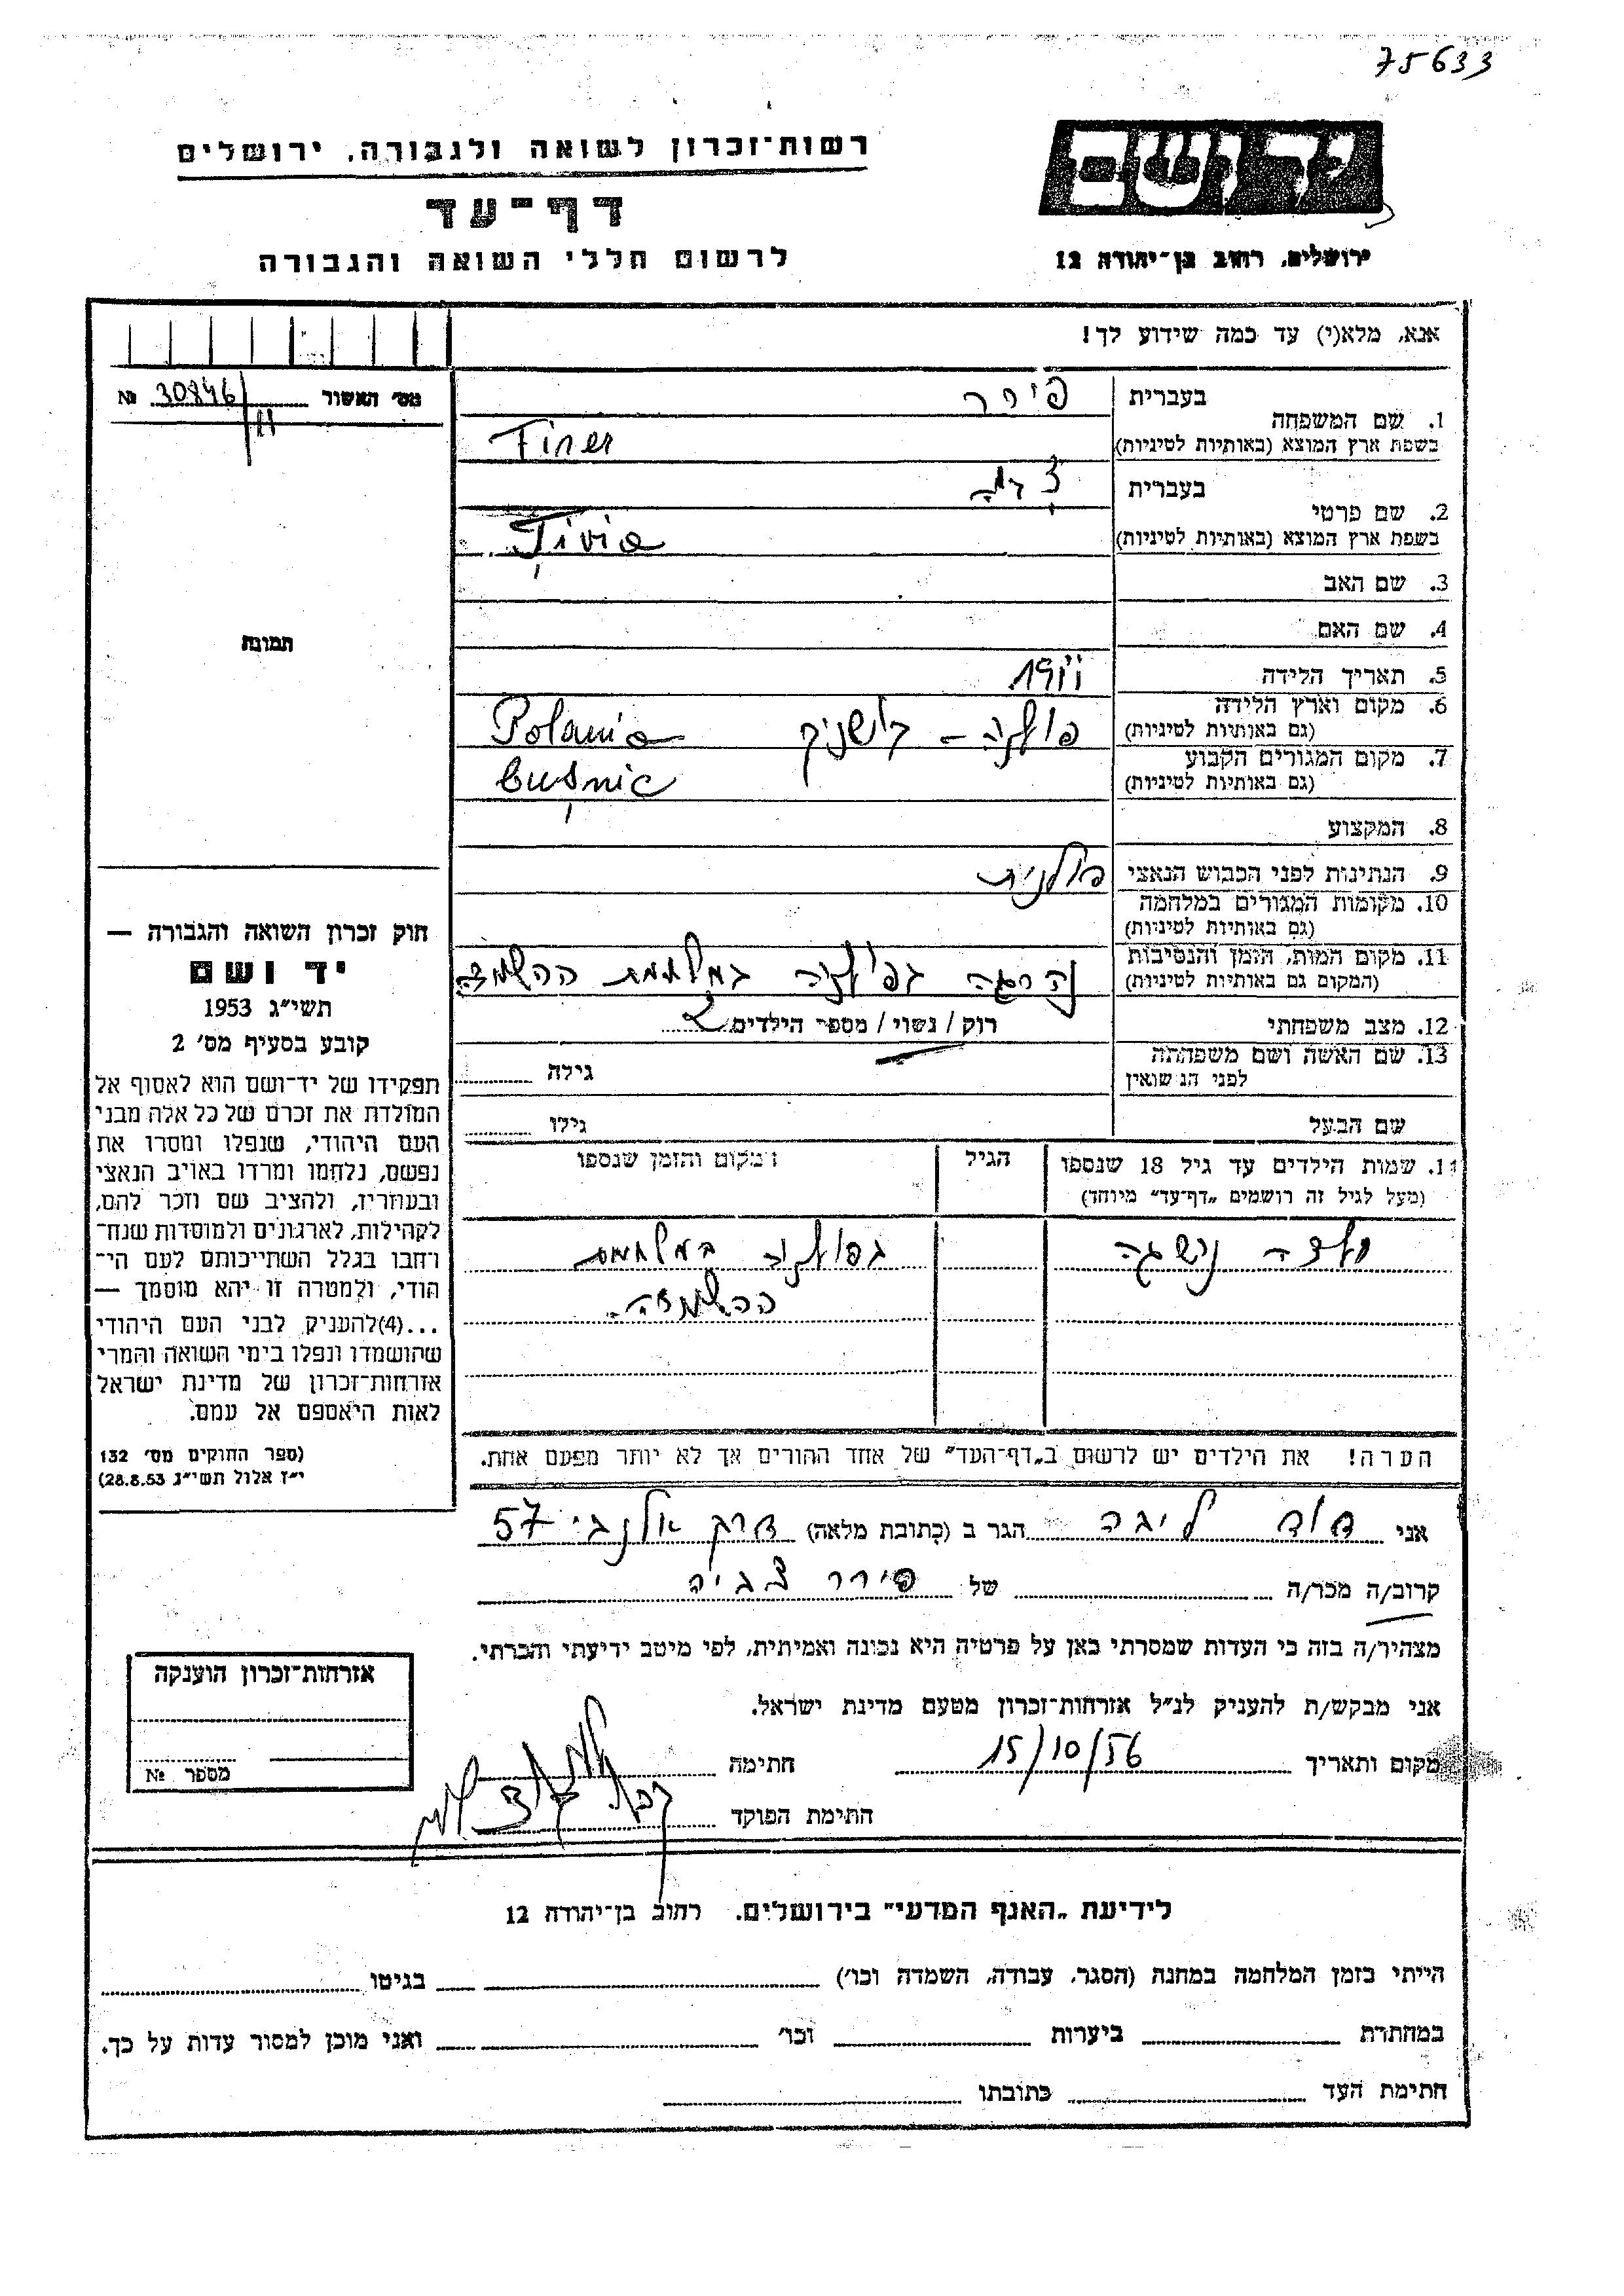 75633
רשות־זכרון לשואה ולגבורה, ירושלים
דף־עד
לרשום חללי השואה והגבורה
יד ושם
ירושלים, רחוב בן־יהודה 12
אנא, מלא(י) עד כמה שידוע לך!
מס׳ האשור № 30846/11
תמונה
1. שם המשפחה
בעברית
בשפת ארץ המוצא (באותיות לטיניות) Finer
2. שם פרטי
בעברית
בשפת ארץ המוצא (באותיות לטיניות) Ţivia
3. שם האב
4. שם האם
5. תאריך הלידה
6. מקום וארץ הלידה
(גם באותיות לטיניות) פולניה – Polania
7. מקום המגורים הקבוע
(גם באותיות לטיניות)
8. המקצוע
9. הנתינות לפני הכבוש הנאצי פולנית
10. מקומות המגורים במלחמה
(גם באותיות לטיניות)
11. מקום המות, הזמן והנסיבות
(המקום גם באותיות לטיניות) נהרגה בפולניה במלחמת ההשמדה
12. מצב משפחתי רוק / נשוי / מספר הילדים 2
13. שם האשה ושם משפחתה
לפני הנשואין גילה
שם הבעל גילו
14. שמות הילדים עד גיל 18 שנספו
(מעל לגיל זה רושמים „דף־עד״ מיוחד)
הגיל
המקום והזמן שנספו
בפולניה במלחמת
ההשמדה.
הערה! את הילדים יש לרשום ב„דף־העד״ של אחד ההורים אך לא יותר מפעם אחת.
חוק זכרון השואה והגבורה —
יד ושם
תשי״ג 1953
קובע בסעיף מס׳ 2
תפקידו של יד־ושם הוא לאסוף אל
המולדת את זכרם של כל אלה מבני
העם היהודי, שנפלו ומסרו את
נפשם, נלחמו ומרדו באויב הנאצי
ובעוזריו, ולהציב שם וזכר להם,
לקהילות, לארגונים ולמוסדות שנח־
רחבו בגלל השתייכותם לעם הי־
הודי, ולמטרה זו יהא מוסמך —
...(4)להעניק לבני העם היהודי
שהושמדו ונפלו בימי השואה והמרי
אזרחות־זכרון של מדינת ישראל
לאות היאספם אל עמם.
(ספר החוקים מס׳ 132
י״ז אלול תשי״ג 28.8.53)
אני דוד ליבה הגר ב (כתובת מלאה) דרק אלנבי 57
קרוב/ה מכר/ה של פינר צביה
מצהיר/ה בזה כי העדות שמסרתי כאן על פרטיה היא נכונה ואמיתית, לפי מיטב ידיעתי והכרתי.
אני מבקש/ת להעניק לנ״ל אזרחות־זכרון מטעם מדינת ישראל.
מקום ותאריך 15/10/56 חתימה
חתימת הפוקד
אזרחות־זכרון הוענקה
מספר №
לידיעת „האגף המדעי״ בירושלים. רחוב בן־יהודה 12
הייתי בזמן המלחמה במחנה (הסגר, עבודה, השמדה וכו׳) בגיטו
במחתרת ביערות וכו׳ ואני מוכן למסור עדות על כך.
חתימת העד כתובתו